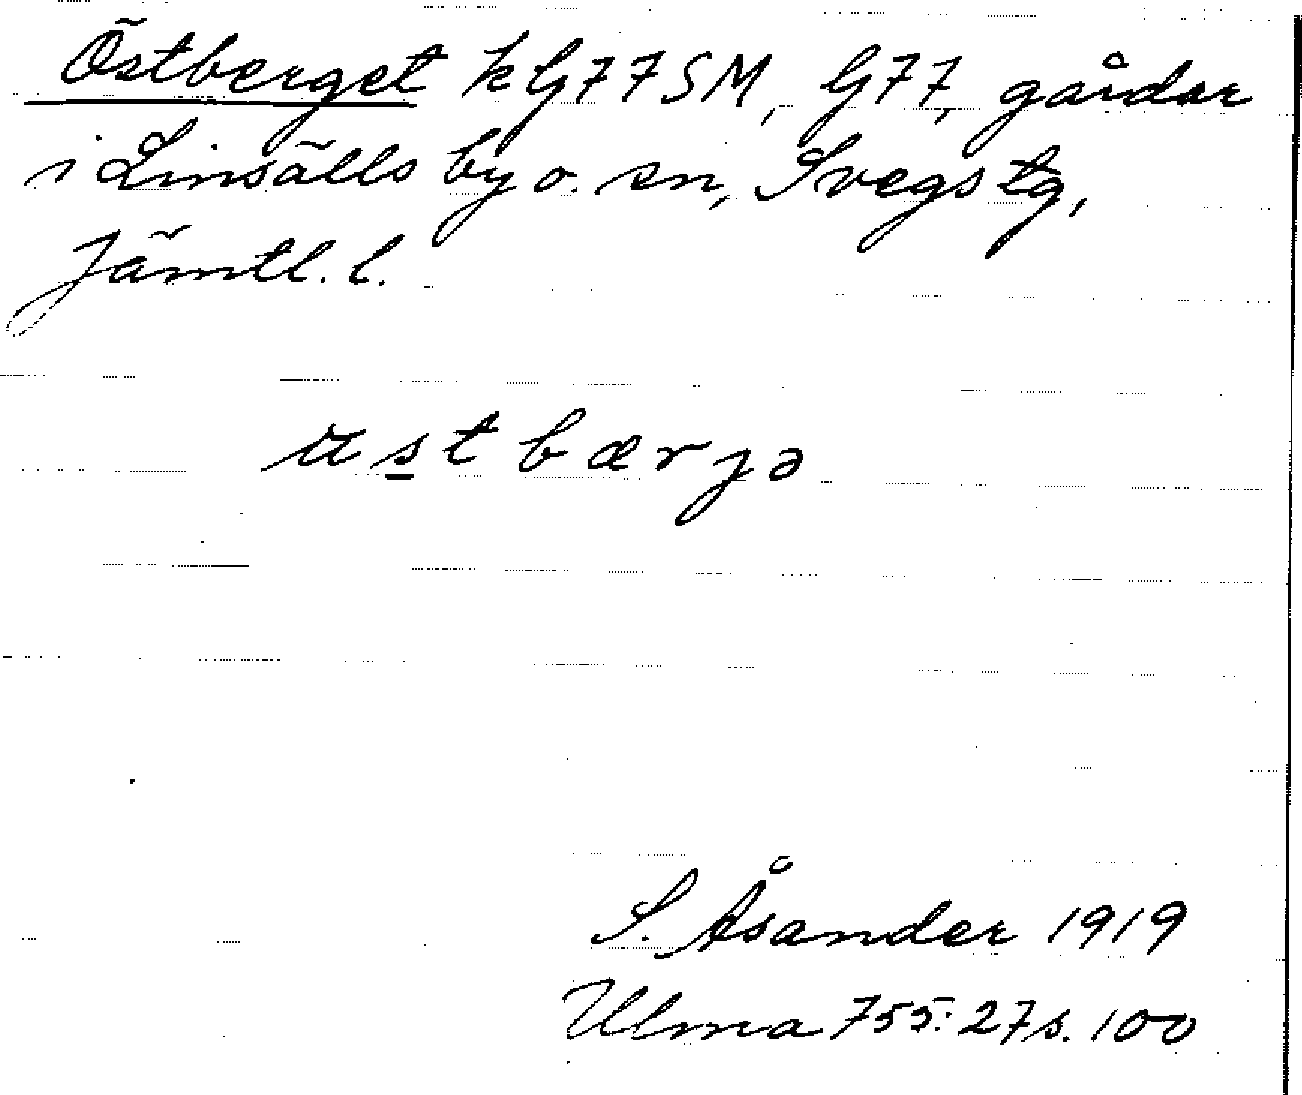 Östberget k G77SM, G77, gårdar
i Linsälls by o. sn, Svegs tg,
Jämtl. l.
ustbærjə
S. Åsander 1919
Ulma 755:27 s. 100